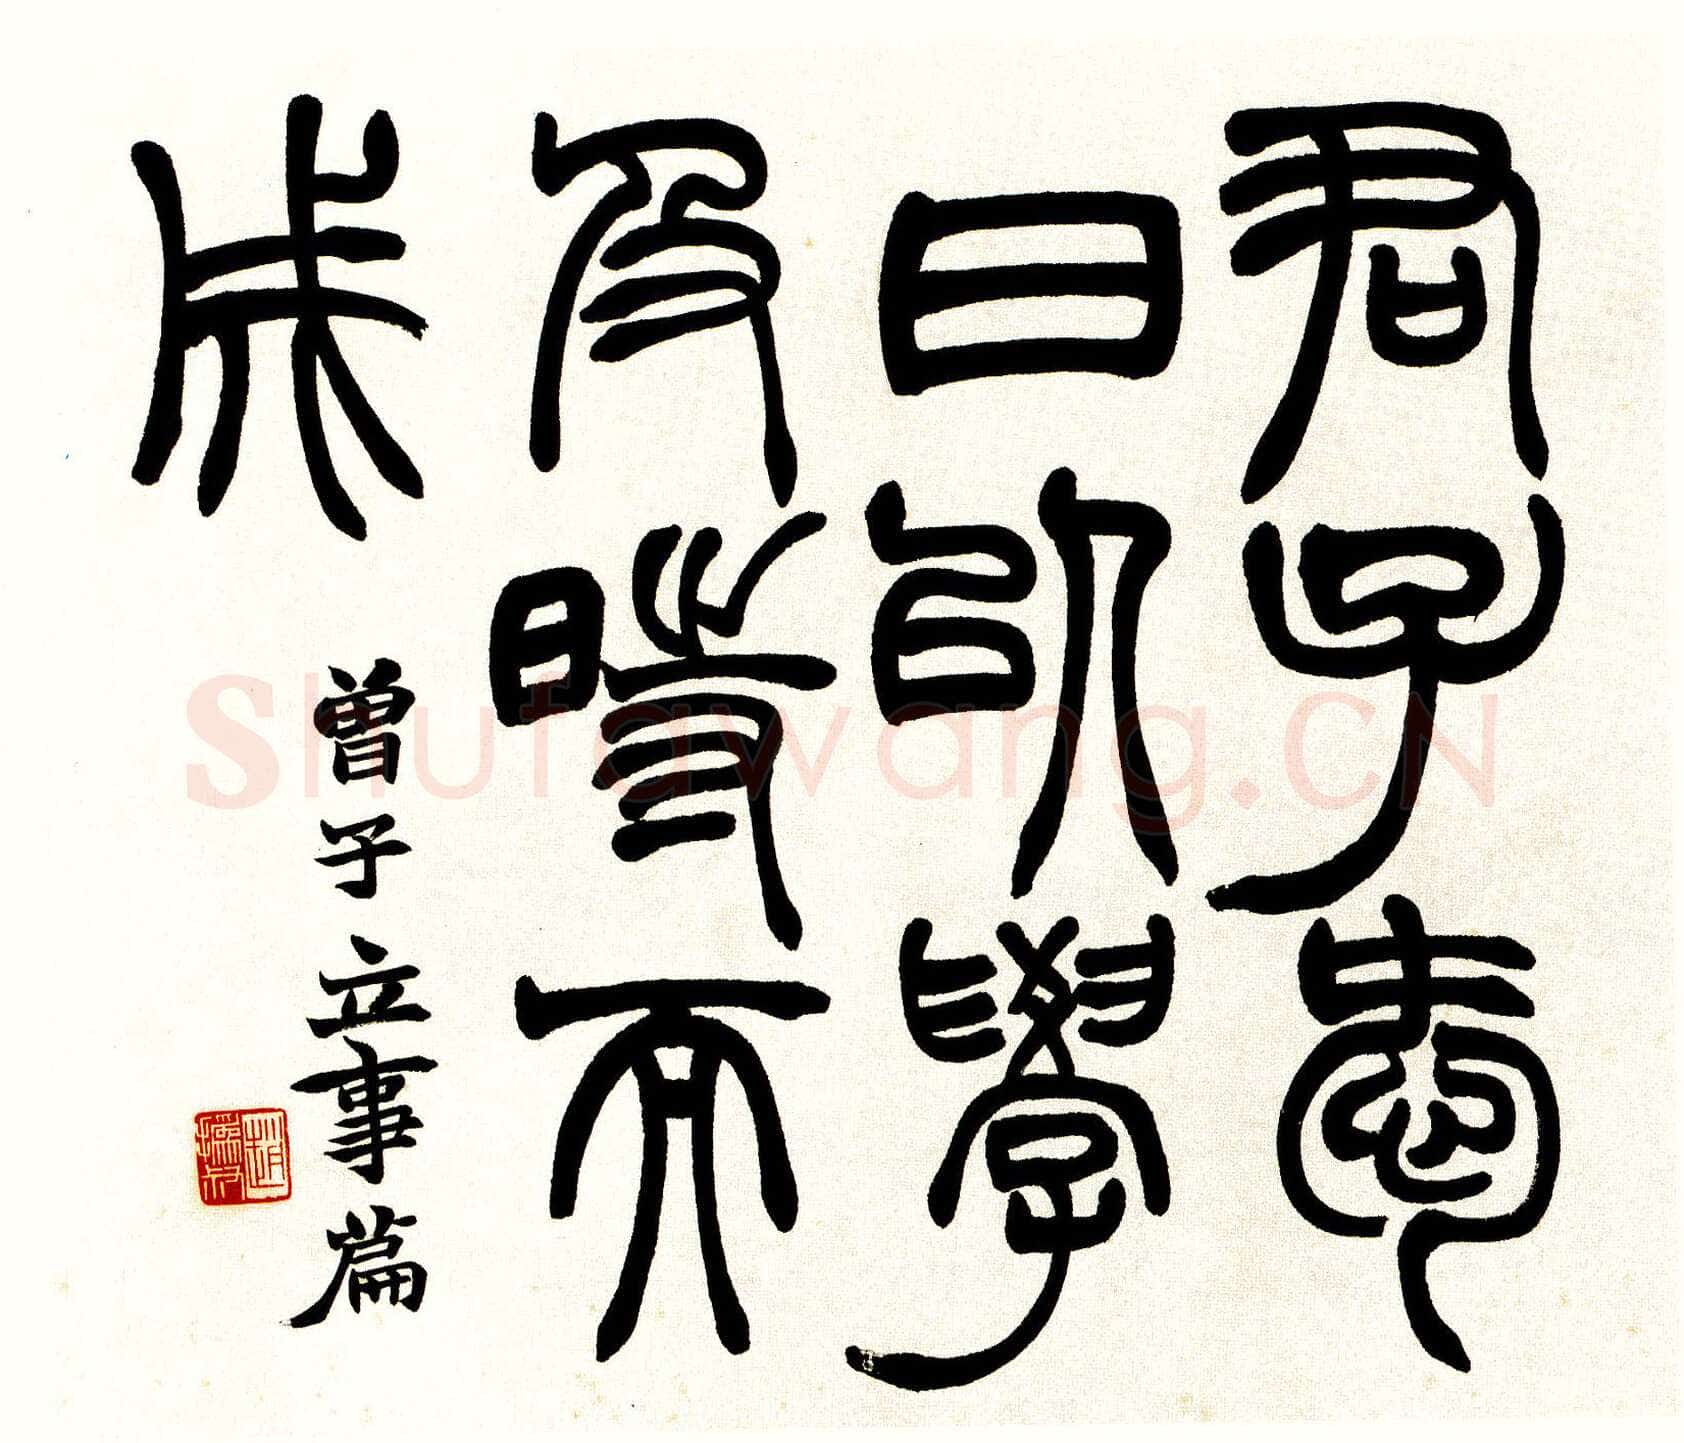 君子愛
日以學
及時而
成
曾子立事篇
趙撝叔
Shufawang.CN